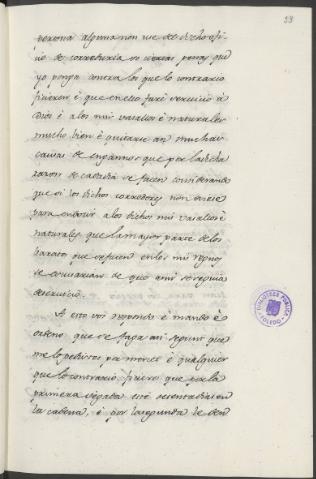 23
persona alguna non use del dicho ofi-
cio de correduria so ciertas penas que
yo ponga contra los que lo contrario
ficieren é que en esto faré servicio á
Dios é a los mis vasallos é naturales
mucho bien é quitarse an muchas
causas de engannos que por la dicha
razon de cada dia se facen considerando
que si los dichos corredores non oviese
para enducir a los dichos mis vasallos é
naturales que la mayor parte de los
baratos que se facen en los mis regnos
se escusarian de que a mi se seguia
deservicio.
A esto vos respondo é mando é
ordeno que se faga asi segunt que
me lo pedistes por merced é qualquier
que lo contrario ficiere que por la
primera vegada esté sesenta dias en
la cadena, é por la segunda le den
BIBLIOTECA PUBLICA
TOLEDO